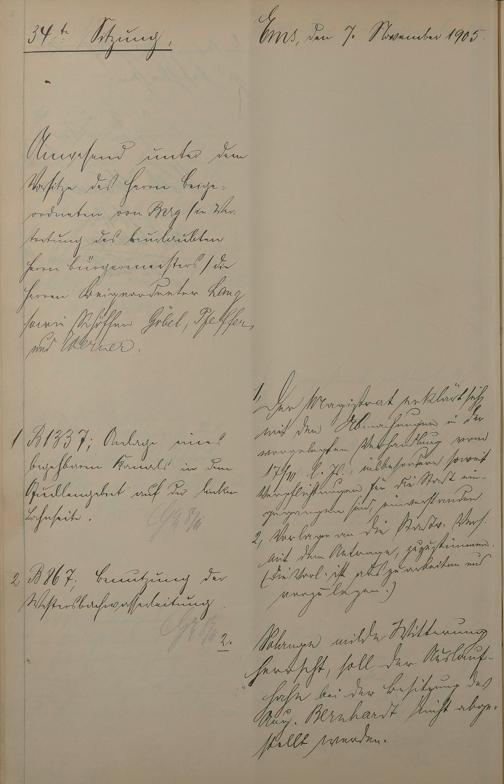 34te Sitzung.
Ems, den 7. November 1905.
Anwesend unter dem
Vorsitze des Herrn Beige-
ordneten von Berg (in Ver-
tretung des beurlaubten
Herrn Bürgermeisters) die
Herren Beigeordneter Lang
sowie Schöffen Göbel,
und Werner.
1 B1337; Anlage eines
begehbaren Kanals in dem
Quellengebiet auf der linken
Lahnseite.
2 B867; Benutzung der
Westerbachwasserleitung.
2.
1, Der Magistrat erklärt sich
mit den Abmachungen in der
vorgelegten Verhandlung vom
insbesondere soweit
Verpflichtungen für die Stadt ein-
gegangen sind, einverstanden
2, Vorlage an die Stadtv. Vers.
mit dem Antrage, zuzustimmen.
(die Vorl. ist auszuarbeiten und
vorzulegen.)
Solange milde Witterung
herrscht, soll der Auslauf-
hahn bei der Besitzung des
Aug. Bernhardt nicht abge-
stellt werden.